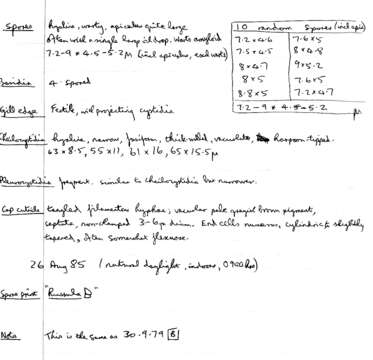 Spores hyaline, warty, apiculus quite large
Often with a single large oil drop. Warts amyloid
7.2-9 × 4.5-5.2μ (incl apiculus, excl warts)
10 random spores (incl apic)
7.2×4.6 7.6×5
7.5×4.5 8×4.8
8×4.7 9×5.2
8×5 7.6×5
8.8×5 7.2×4.7
7.2-9 × 4.5-5.2 μs
Basidia 4-spored
Gill edge Fertile, with projecting cystidia
Cheilocystidia hyaline, narrow, fusiform, thick walled, vacuolate, tipped.
63×8.5, 55×11, 61×16, 65×15.5μ
Pleurocystidia frequent. similar to cheilocystidia but narrower.
Cap cuticle tangled filamentous hyphae, vacuolar pale greyish brown pigment,
septate, non-clamped 3-6μ diam. End cells numerous, cylindric & slightly
tapered, often somewhat flexuose.
26 Aug 85 (natural daylight, indoors, 0900hrs)
Spore print "Russula D"
Nota This is the same as 30.9.79 [B]